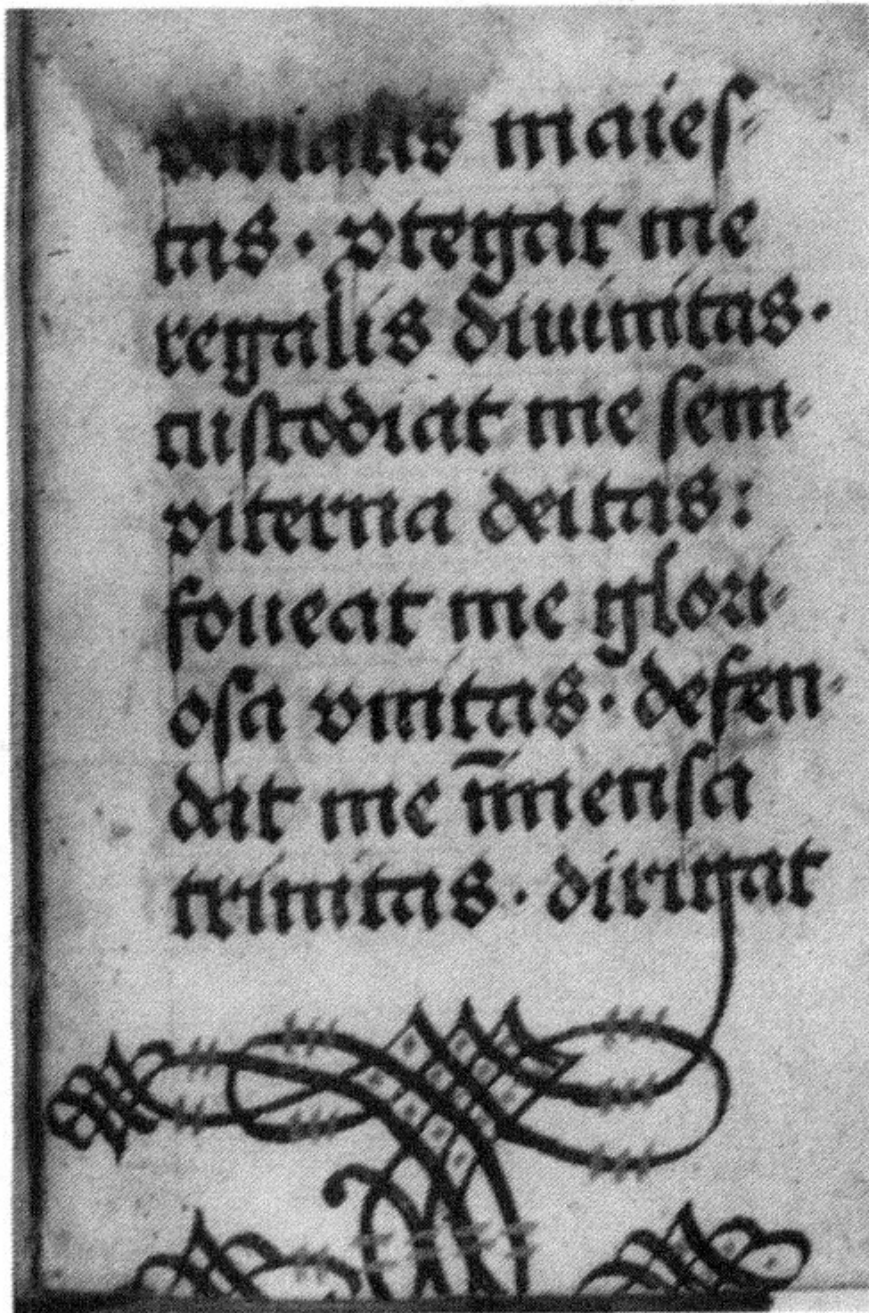 perialis maieſ-
tas · ꝓtegat me
regalis diuinitas ·
cuſtodiat me ſem-
piterna deitas :
foueat me glori-
oſa vnitas · defen-
dat me īmenſa
trinitas · dirigat